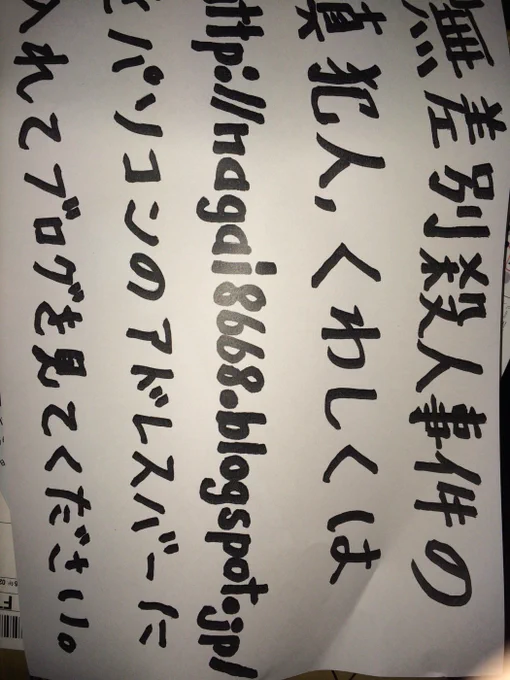 無差別殺人事件の
真犯人,くわしくは
http://nagai8668.blogspot.jp/
とパソコンのアドレスバーに
入れてブログを見てください。